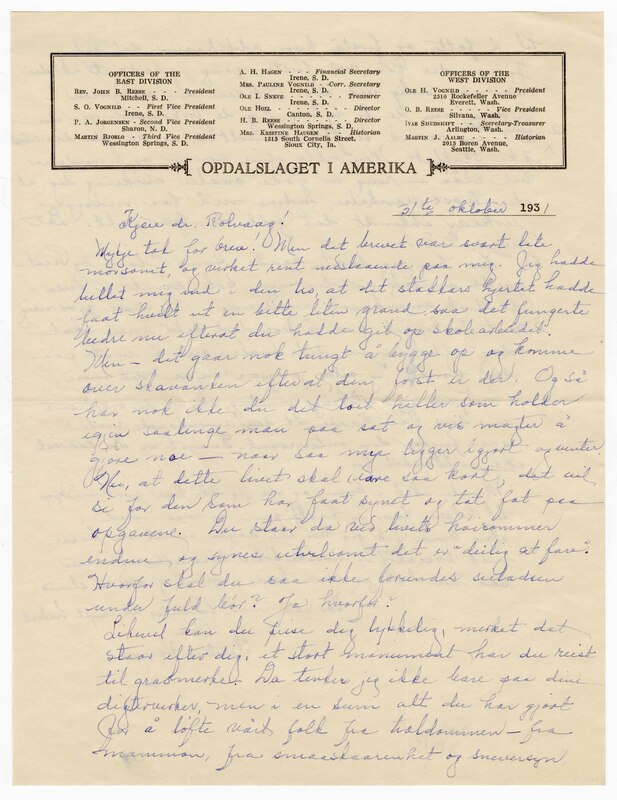 OFFICERS OF THE
EAST DIVISION
REV. JOHN B. REESE - - - President
Mitchell, S. D.
S. O. VOGNILD - First Vice President
Irene, S. D.
P. A. JORGENSEN - Second Vice President
Sharon, N. D.
MARTIN BJORLO - Third Vice President
Wessington Springs, S. D.
A. H. HAGEN - - - Financial Secretary
Irene, S. D.
MRS. PAULINE VOGNILD - Corr. Secretary
Irene, S. D.
OLE I. SNEVE - - - - Treasurer
Irene, S. D.
OLE HOEL - - - - - Director
Canton, S. D.
H. B. REESE - - - - - Director
Wessington Springs, S. D.
MRS. KRISTINE HAUGEN - Historian
1315 South Cornelia Street,
Sioux City, Ia.
OFFICERS OF THE
WEST DIVISION
OLE H. VOGNILD - - - - President
2510 Rockefeller Avenue
Everett, Wash.
O. B. REESE - - - Vice President
Silvana, Wash.
IVAR STUBSHIFT - Secretary-Treasurer
Arlington, Wash.
MARTIN J. AALBU - - - Historian
2015 Boren Avenue,
Seattle, Wash.
OPDALSLAGET I AMERIKA
31te oktober 1931
Kjære dr. Rolvaag!
Mykje tak for brev. Men det brevet var svært lite
morsomt, og virket rent nedslaaende paa mig. Jeg hadde
bullet mig ind i den tro, at det stakkars hjertet hadde
faat hvilt ut en bitte liten grand, saa det fungerte
bedre nu efterat du hadde git op skolearbeidet.
Men — det gaar nok tungt å bygge op og komme
over skavanken efterat den først er der. Også
har nok ikke du det tøit heller som holder
igjen saalenge man paa sæt og vis magter å
gjøre noe — naar saa mye ligger igjort og venter
Nei, at dette livet skal være saa kort, det vil
si for den som har faat synet og tat fat paa
opgavene. Du staar da ved livets høisommer
endnu og synes utvilsomt det er "deilig at fare".
Hvorfor skal du saa ikke forundes seiladsen
under fuld bør? Ja hvorfor?
Likevel kan du prise dig lykkelig, merket det
staar efter dig, et stort monument har du reist
til gravmerke. Da tenker jeg ikke bare paa dine
digterverker, men i en sum alt du har gjort
for å løfte vårt folk fra traldommen — fra
mammon, fra smaaskaarenhet og sneversyn